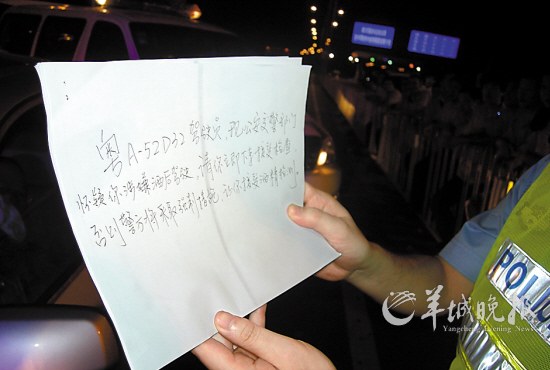 粤A-52D32驾驶员,现公安交警部门
怀疑你涉嫌酒后驾驶,请你立即下车接受检查
否则警方将采取强制措施,对你接受酒精检测。
POLIC
羊城晚报
Yangcheng Evening News